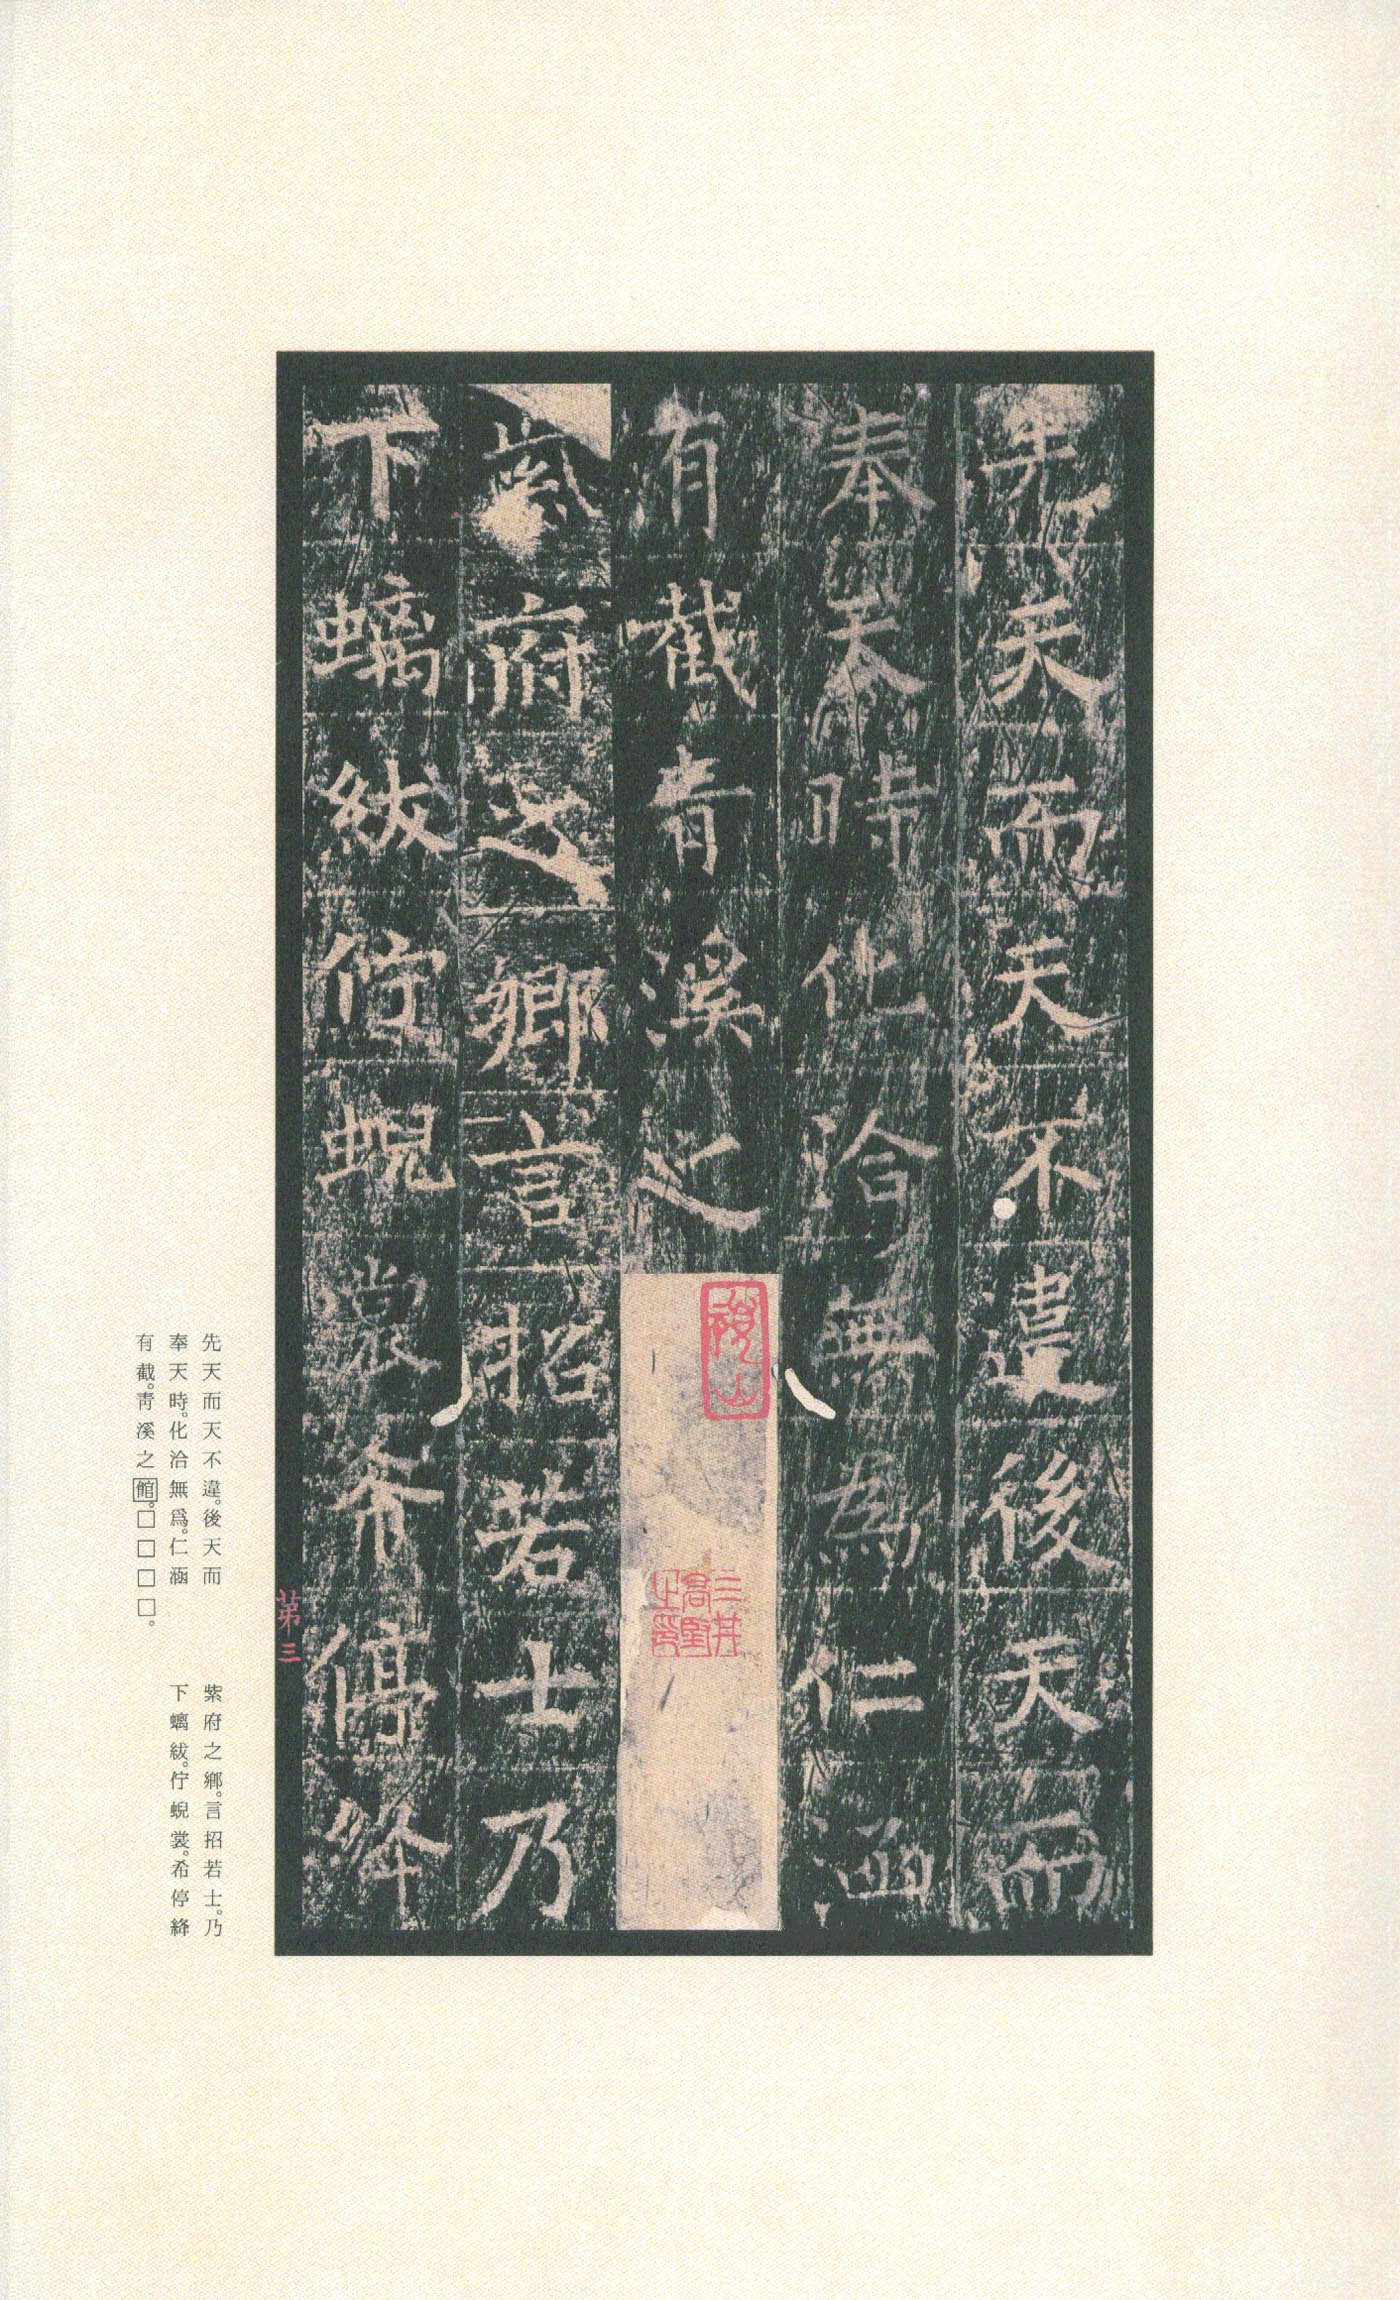 先天而天不違後天而
奉天時化洽無為仁涵
有截青溪之
紫府之鄉言招若士乃
下螭紱佇蜺裳希停絳
第三
三井高堅之印
先天而天不違。後天而
奉天時。化洽無爲。仁涵
有截。靑溪之館。□□□□。
紫府之鄕。言招若士。乃
下螭紱。佇蜺裳。希停絳